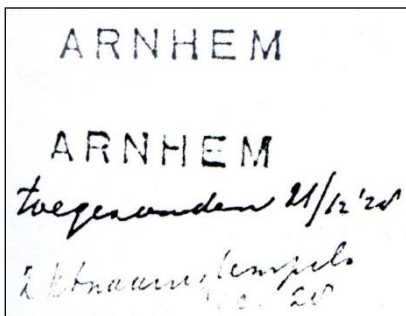 ARNHEM
ARNHEM
toegezonden 21/12 '28
2 ktnaamstempels